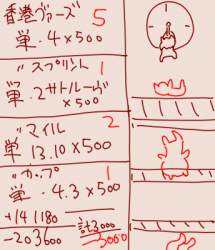 香港ヴァーズ 5
単.4×500
〃スプリント 1
単.2サトルード
×500
〃マイル 2
単 13.10×500
〃カップ 1
単.4.3×500
+141180
-203600
計3000